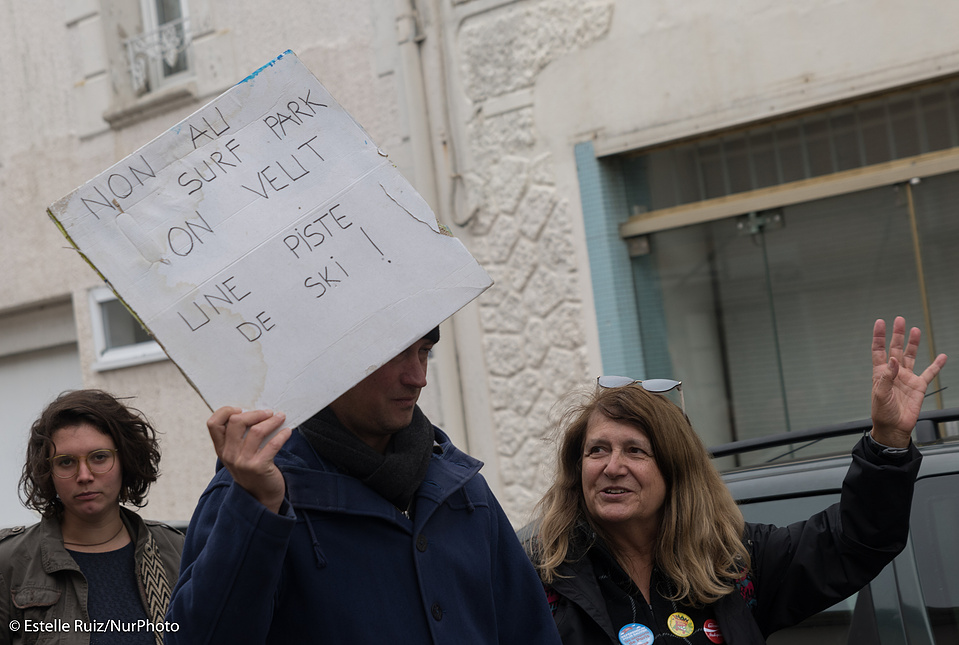 NON AU
SURF PARK
ON VEUT
UNE PISTE
DE SKI !
© Estelle Ruiz/NurPhoto